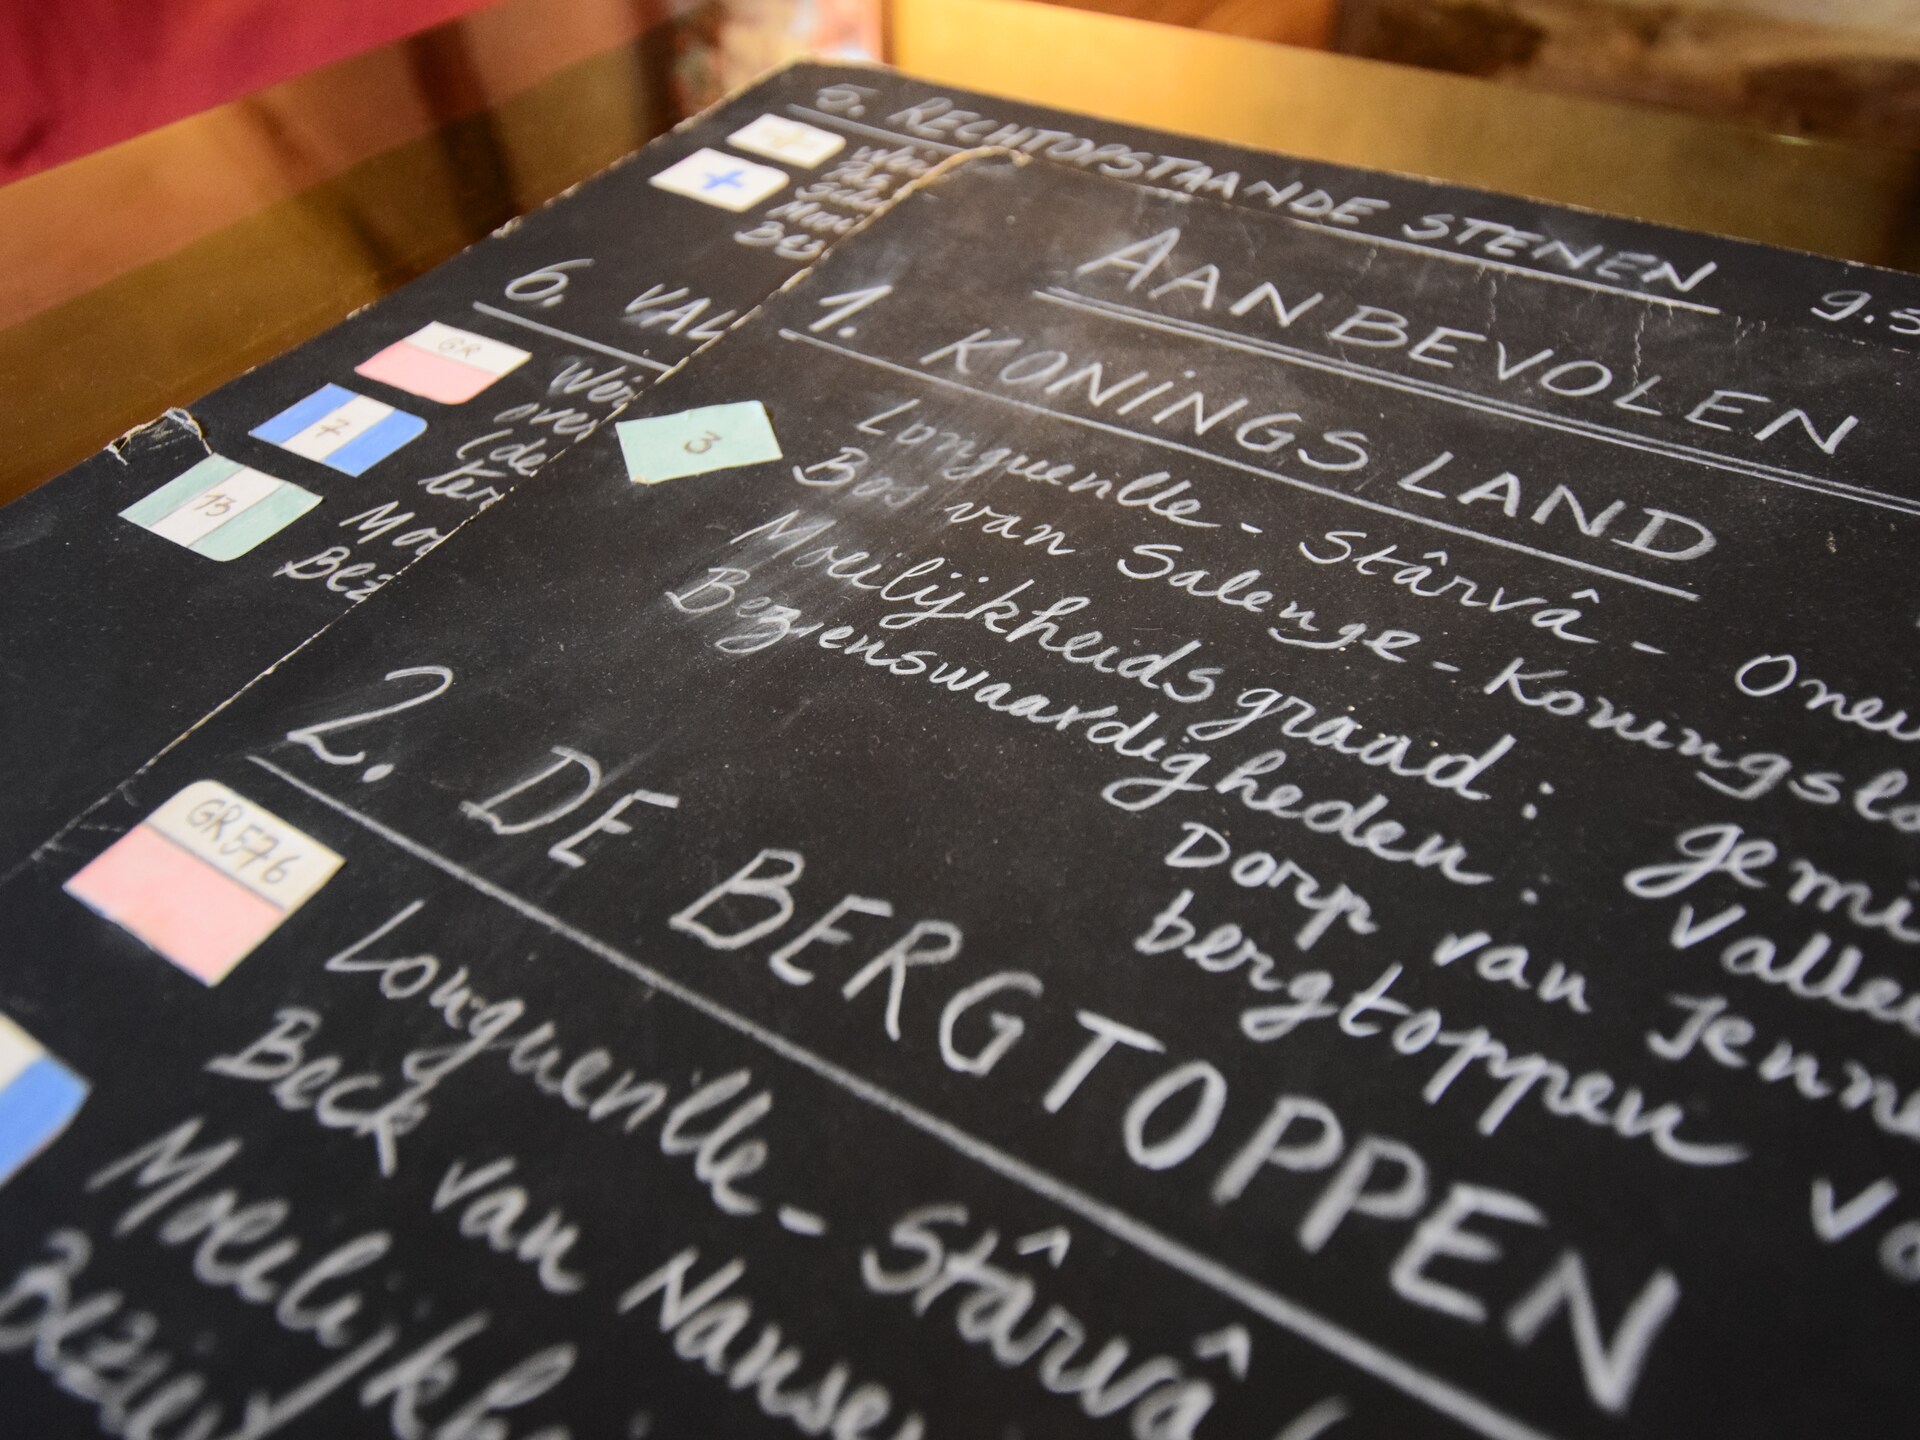 5. RECHTOPSTAANDE STENEN 9.5
+
6. VAL
GR
7
13
AANBEVOLEN
1. KONINGSLAND
3
Longueville - Stârvâ - Oneu
Bos van Salenge - Koningslo
Moeilijkheidsgraad: gemi
Bezienswaardigheden: Vallei
Dorp van Jenne
bergtoppen
2. DE BERGTOPPEN
GR576
Longueville - Stârvâ (
Beck van Nanse
Moeilijkhei
Bezien